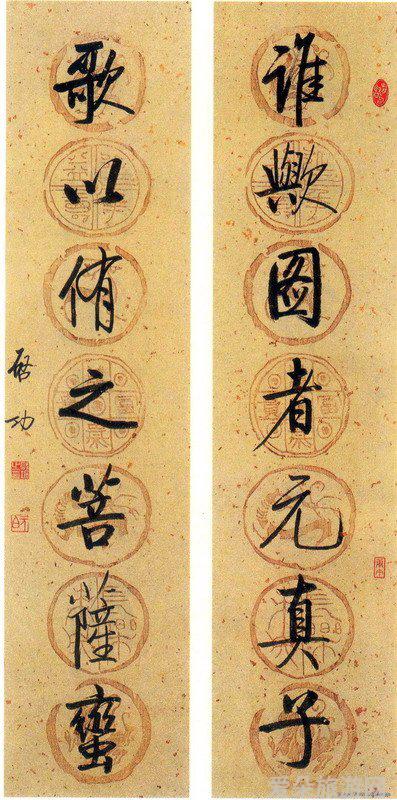 谁歟图者元真子
歌以侑之菩薩蠻
启功
爱朵旅游网